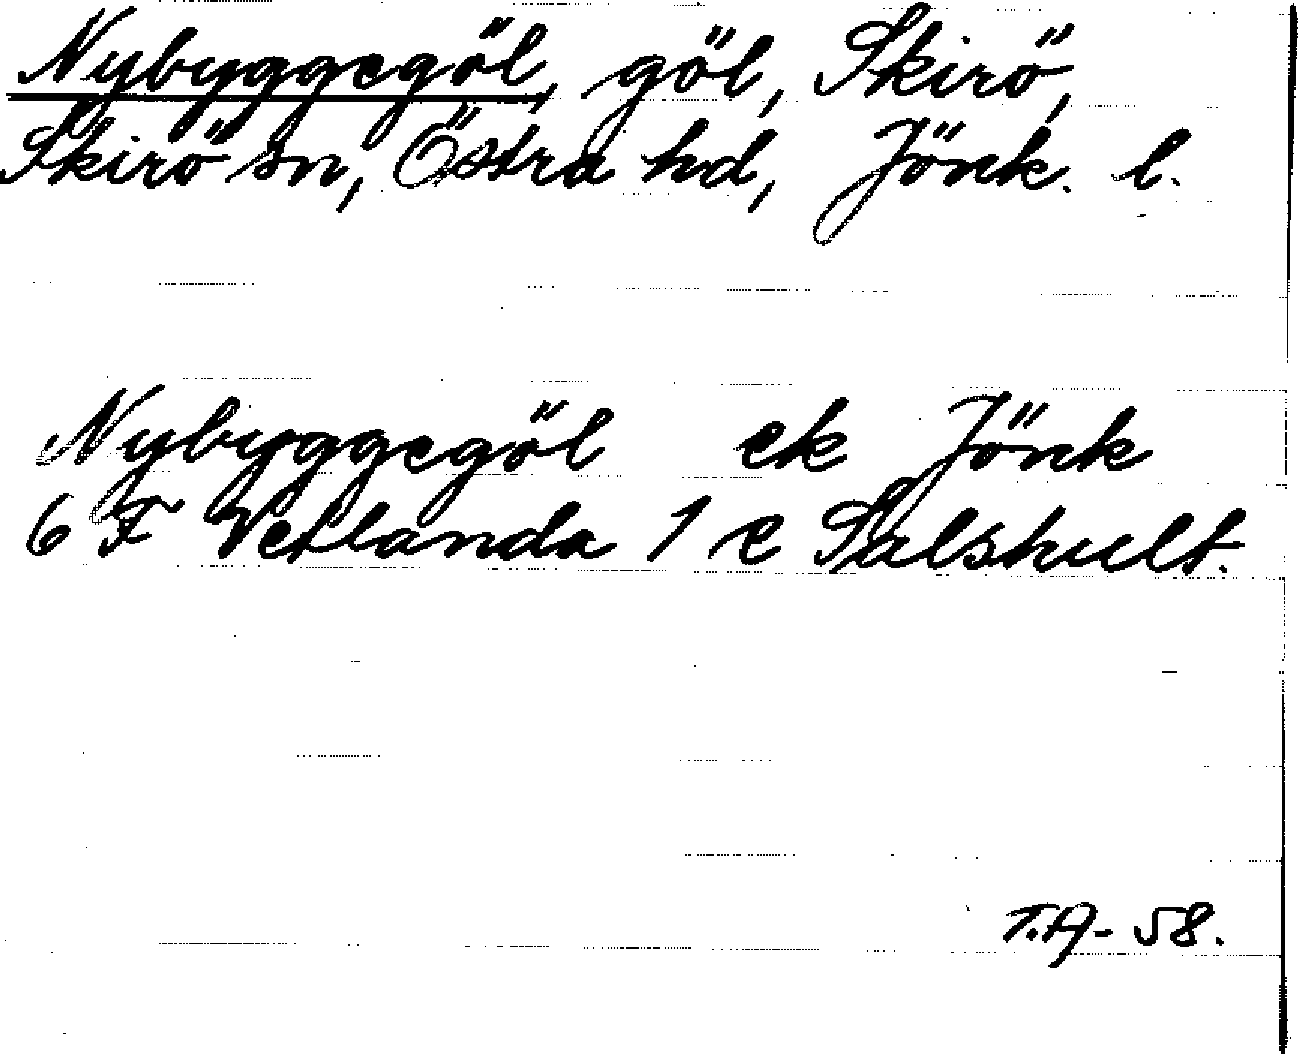 Nybyggegöl, göl, Skirö,
Skirö sn, Östra hd, Jönk. l.
Nybyggegöl ek Jönk
6 F Vetlanda 1 c Salshult.
T.A-58.